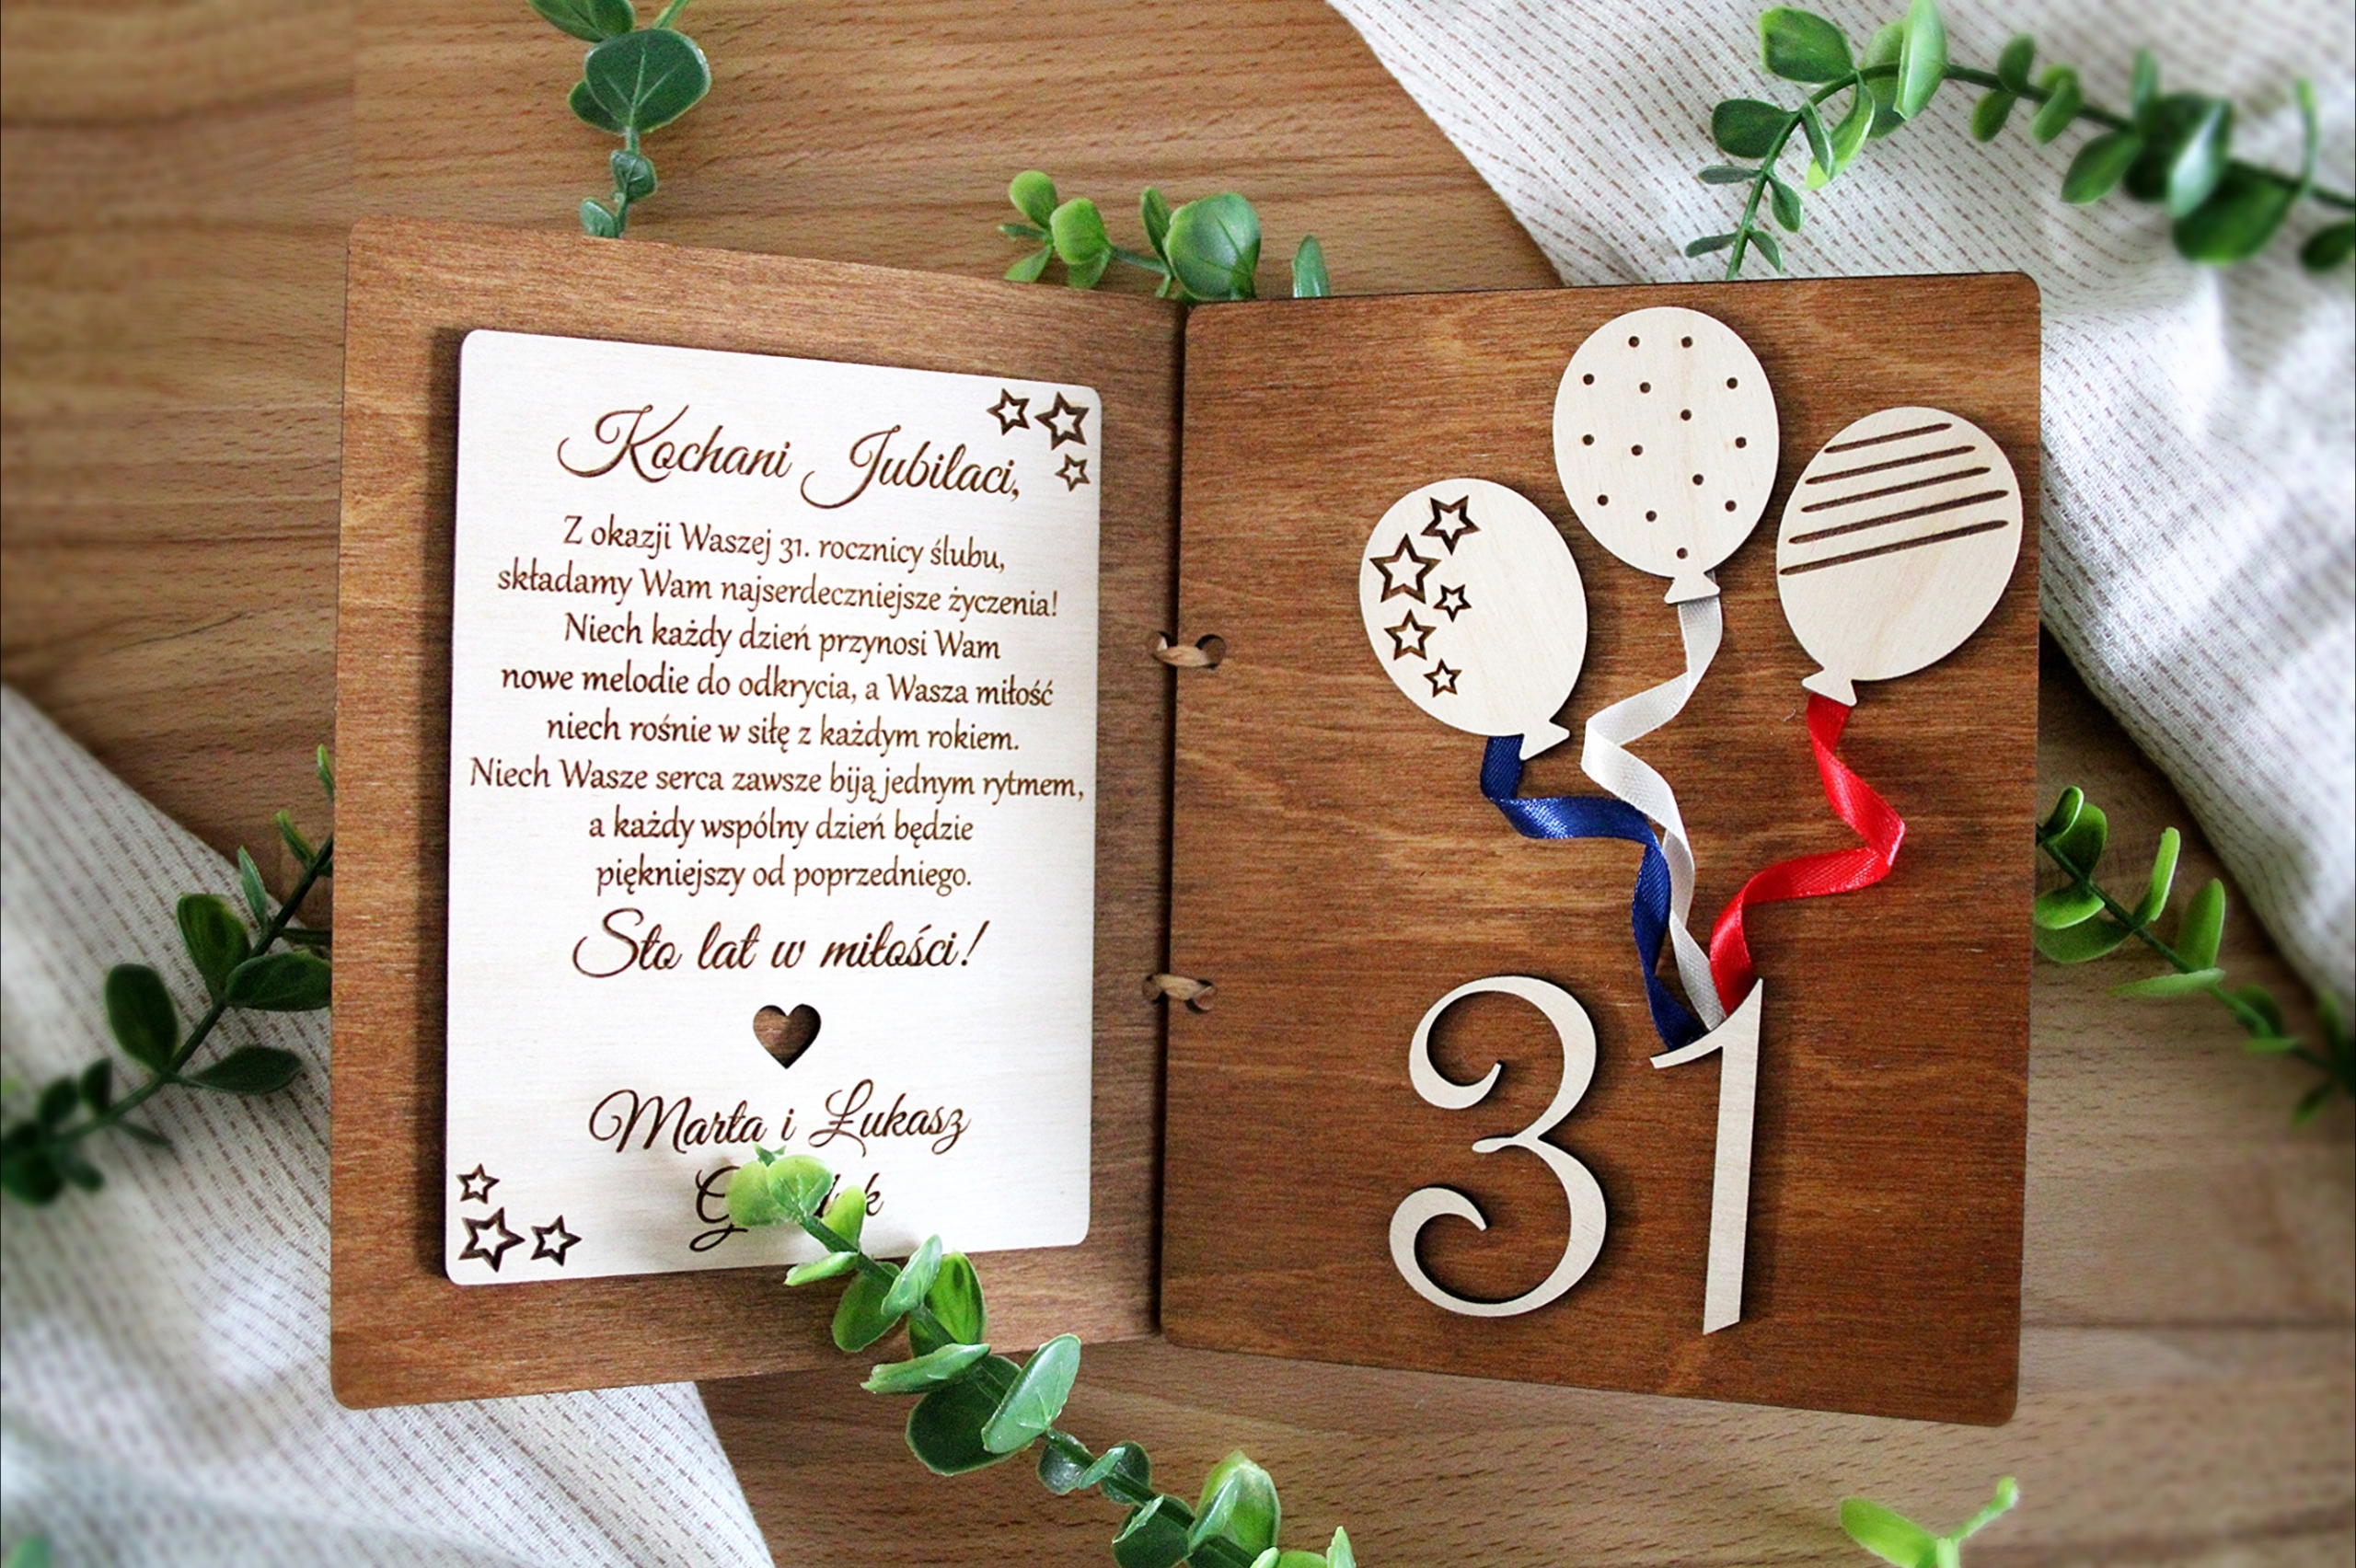 Kochani Jubilaci,
Z okazji Waszej 31. rocznicy ślubu,
składamy Wam najserdeczniejsze życzenia!
Niech każdy dzień przynosi Wam
nowe melodie do odkrycia, a Wasza miłość
niech rośnie w siłę z każdym rokiem.
Niech Wasze serca zawsze biją jednym rytmem,
a każdy wspólny dzień będzie
piękniejszy od poprzedniego.
Sto lat w miłości!
Marta i Łukasz
31